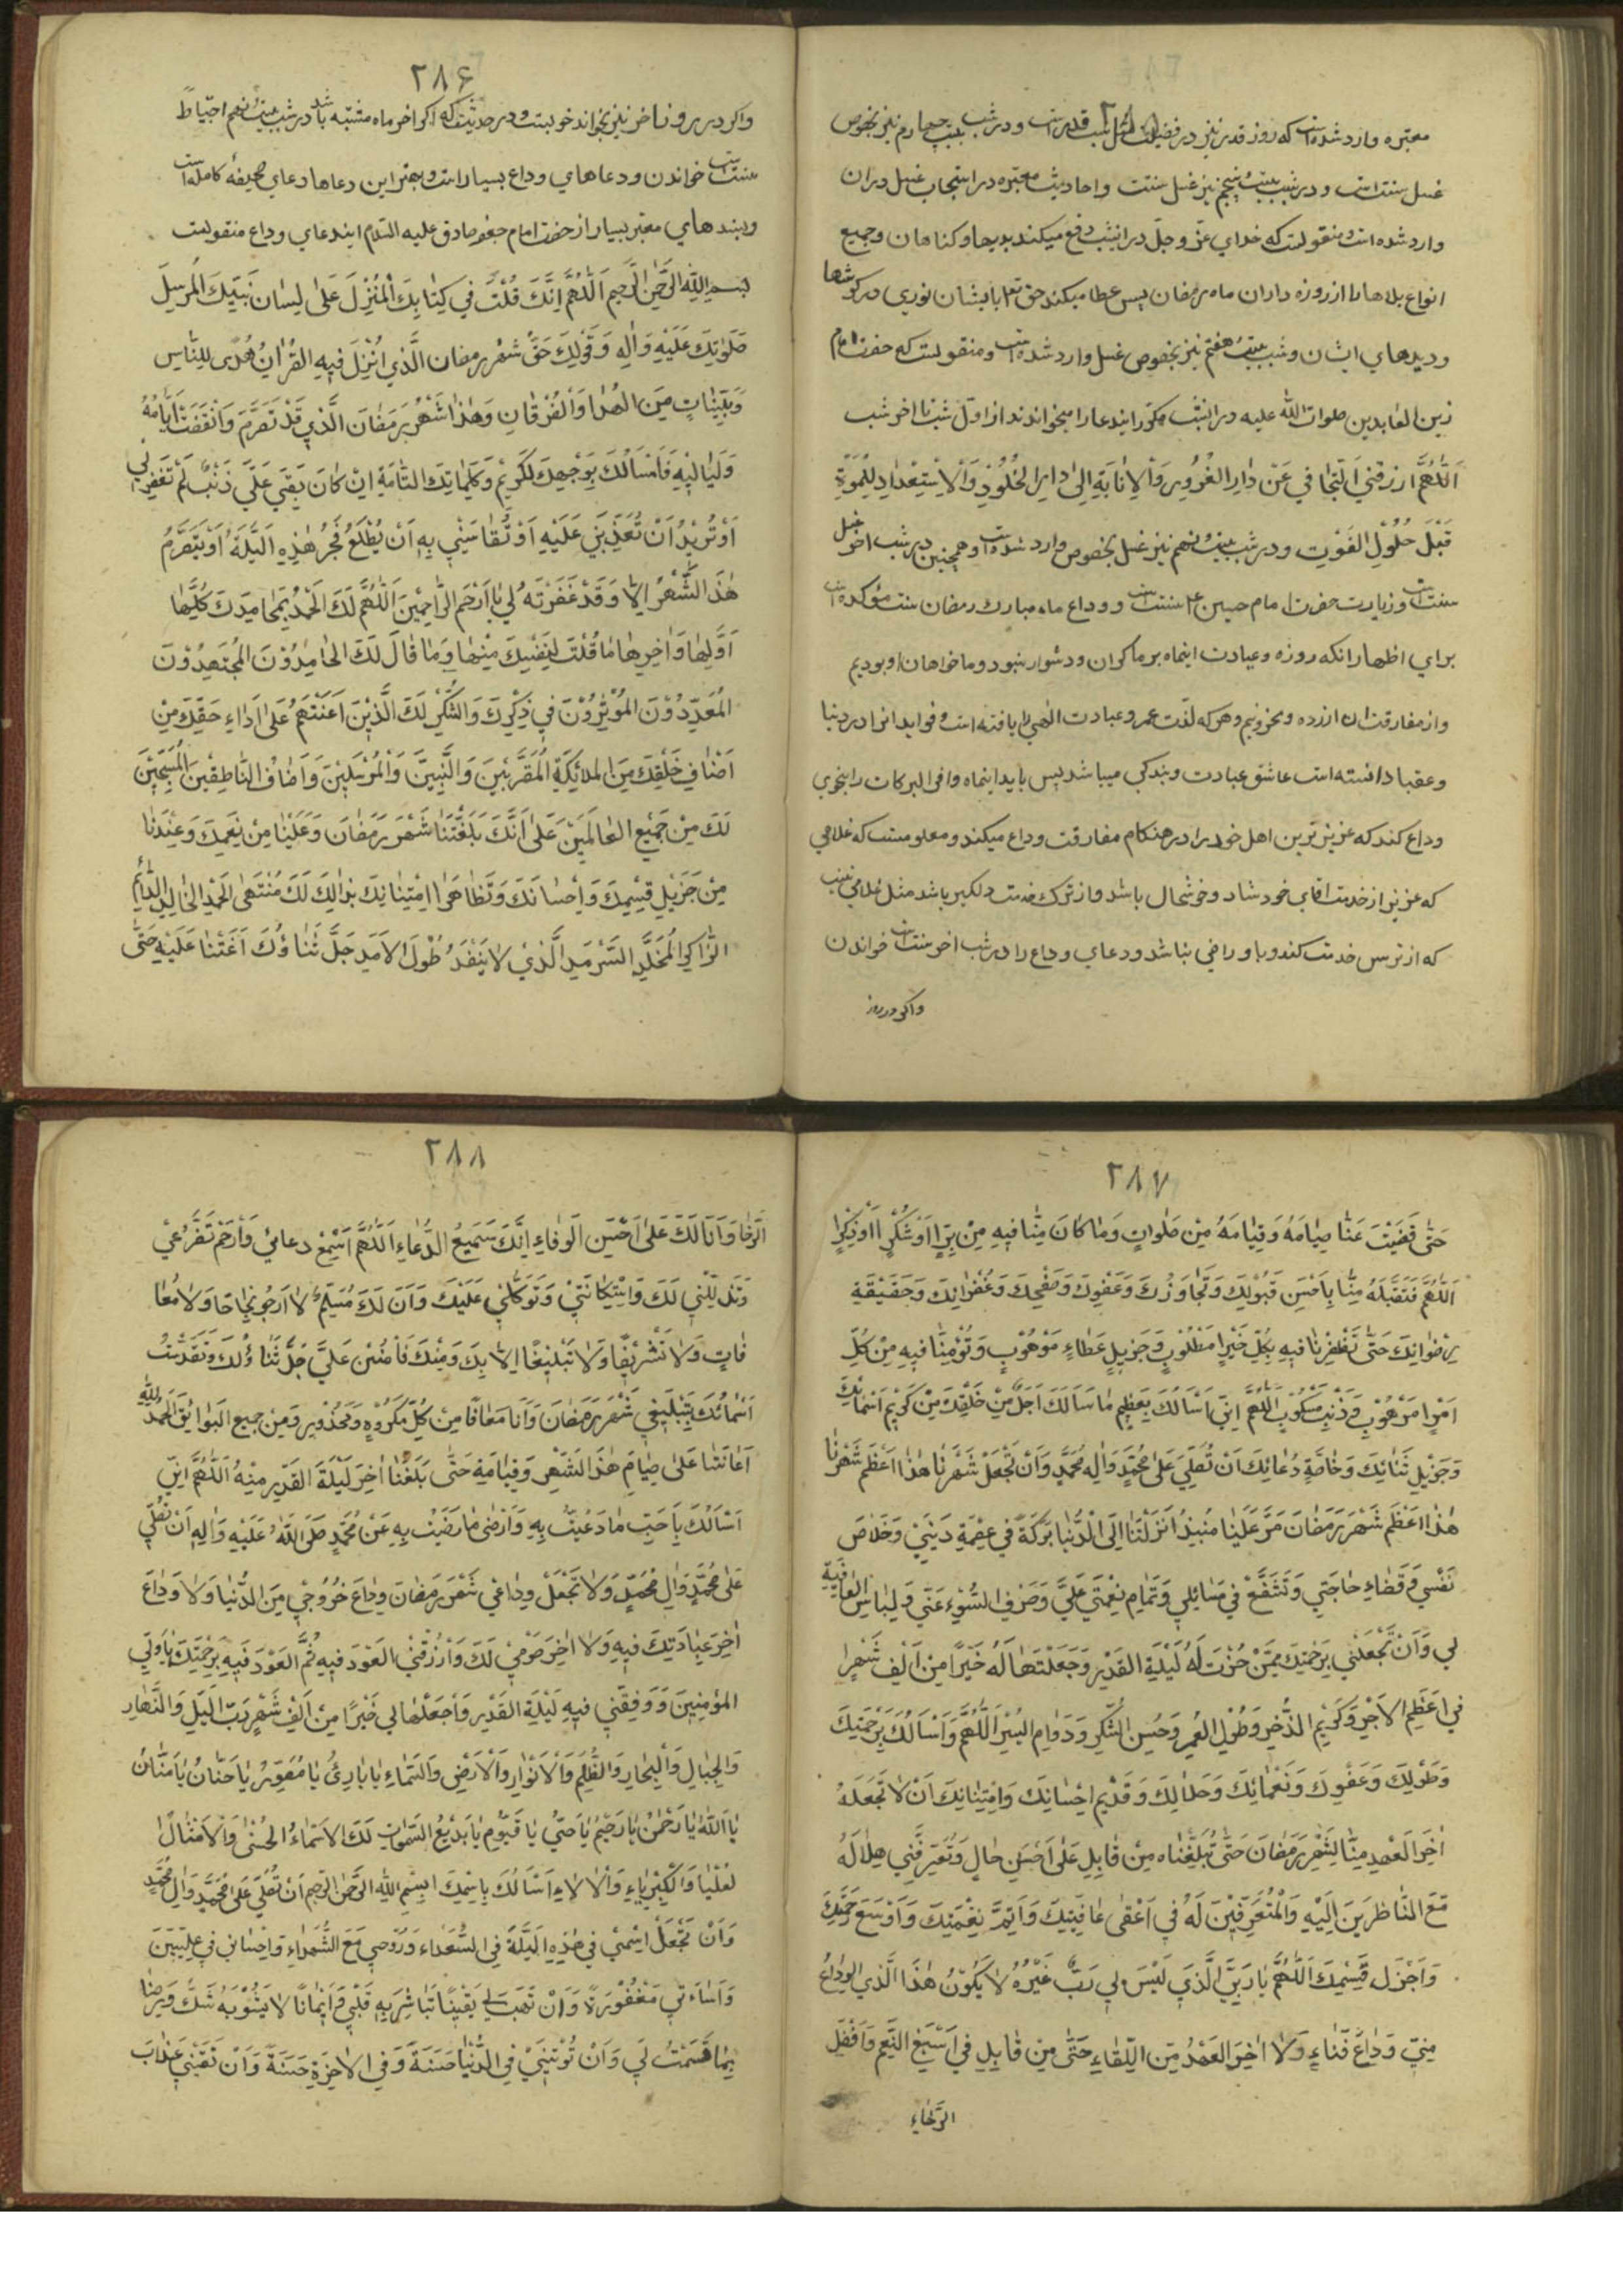 معتبره وارد شده است که روز قدر نیز در فضیلت مثل شب قدر است و در شب بیست چهارم نیز بخصوص
غسل سنت است و در شب بیست و پنجم نیز غسل سنتست و احادیث معتبره در استحباب غسل در ان
وارد شده است و منقولست که خدای عز و جل در این شب دفع میکند بدیها و کناهان و جمیع
انواع بلاها را از روزه داران ماه رمضان پس عطا میکند حق تعالی بایشان نوری در کوشها
و دیدهای ایشان و شب بیست هفتم نیز بخصوص غسل وارد شده است و منقولست که حضرت امام
زین العابدین صلوات الله علیه در این شب مکرر ایندعا را میخواندند از اول شب تا اخر شب
اَللّٰهُمَّ ارْزُقْنِي اَلتَّجافي عَنْ دارِ الغُرُورِ وَالْاِنابَةِ اِلىٰ دارِ الخُلُودِ وَالْاِسْتِعْدادِ لِلْمَوْتِ
قَبْلَ حُلُولِ الفَوْتِ و در شب بیست و نهم نیز غسل بخصوص وارد شده است و همچنین در شب اخر غسل
سنت است و زیارت حضرت امام حسین ع سنت است و وداع ماه مبارک رمضان سنت مؤکده است
برای اظهار انکه روزه و عبادت اینماه بر ما کران و دشوار نبود و ما خواهان او بودیم
و از مفارقت ان ازرده و محزونیم و هر که لذت عمر و عبادت الهی را یافته است و فواید انرا در دنیا
و عقبا دانسته است عاشق عبادت و بندکی میباشد پس باید اینماه وافی البرکات را بنحوی
وداع کند که عزیز ترین اهل خود را در هنکام مفارقت وداع میکند و معلومست که غلامی
که عزیز از خدمت اقای خود شاد و خوشحال باشد و از ترک خدمت دلکیر باشد مثل غلامی نیست
که از ترس خدمت کند و باو راضی نباشد و دعای وداع را در شب اخر سنت است خواندن
واکر در روز
٢٨۶
واکر در روز اخر نیز بخواند خوبست و در حدیثست که اکر اخر ماه مشتبه باشد در شب بیست و نهم احتیاطً
سنت است خواندن و دعاهای وداع بسیار است و بهترین دعاها دعای صحیفهٔ کامله است
و بسندهای معتبر بسیار از حضرت امام جعفر صادق علیه السلام ایندعای وداع منقولست
بِسْمِ اللهِ الرَّحْمٰنِ الرَّحيمِ اَللّٰهُمَّ اِنَّكَ قُلْتَ في كِتابِكَ الْمُنْزِلَ عَلىٰ لِسانِ نَبيِّكَ المُرسَلَ
صَلَوٰتِكَ عَلَيْهِ وَالِهِ وَقَوْلِكَ حَقٌّ شَهْرُ رمضان الَّذي اُنْزِلَ فيهِ القُرْانُ هُدًى لِلنّاسِ
وَبَيِّناتٍ مِنَ الهُدا وَالْفُرْقانِ وَهٰذا شَهْرُ رَمَضانَ الَّذي قَدْ تَصَرَّمَ وَانْقَضَتْ اَيّامُهُ
وَلَياليهِ فَاَسْاَلُكَ بِوَجْهِكَ لكَريمِ وَكَلِماتِكَ التّامَةِ اِنْ كانَ بَقيَ عَلَيَّ ذَنْبٌ لَمْ تَغْفِرْ لي
اَوْتُريْدُ اَنْ تُعَذِّبَني عَلَيْهِ اَوْ تُقاسَني بِهِ اَنْ يُطْلَعُ فَجْرُ هٰذِهِ الَّيْلَةَ اَوْ يَتَصَرَّمُ
هٰذَ الشَّهْرُ اِلّا وَقَدْ غَفَرْتَهُ لي يا اَرْحَمَ الرّاحِمينَ اَللّٰهُمَّ لَكَ الحَمْدُ بِمَحامِدِكَ كُلِّها
اَوَّلِها وَاخِرِها ما قُلْتَ لِنَفْسِكَ مِنْها وَما قالَ لَكَ الحامِدُوْنَ المُجْتَهِدُوْنَ
المُعَدِّدُوْنَ المُوْثِرُوْنَ في ذِكْرِكَ وَالشُّكْرِ لَكَ الَّذينَ اَعَنْتَهُمْ عَلىٰ اَداءِ حَقِّكَ مِنْ
اَصْنافِ خَلْقِكَ مِنَ الملائِكَةِ المُقَرَّبينَ وَالنَّبِيّنَ وَالْمُرْسَلينَ وَاَصْنافِ النّاطِقينَ المُسَبِّحينَ
لَكَ مِنْ جَميعِ العالَمينَ عَلىٰ اَنَّكَ بَلَغْتَنا شَهْرَ رَمَضانَ وَعَلَيْنا مِنْ نِعَمِكَ وَعِنْدَنا
مِنْ جَزيلِ قِسَمِكَ وَاِحْسانَكَ وَتَظاهُرِ اِمْتِنانِكَ لَكَ مُنْتَهىٰ الحَمْدِ الخالِدِ الدّائِمِ
الرّاكِدِ المُخَلَّدِ السَّرْمَدِ الَّذي لا يَنْفَدُ طُوْلَ الاَمَدِ جَلَّ ثَناؤُكَ اَعَنْتَنا عَلَيْهِ حَتّىٰ
٢٨٧
حَتّىٰ قَضَيْتَ عَنّا صِيامَهُ وَقِيامَهُ مِنْ صَلواتٍ وَما كانَ مِنّا فيهِ مِنْ بِرٍّ اَوْشُكْرٍ اَوْذِكْرٍ
اَللّٰهُمَّ فَتَقَبَّلْهُ مِنّا بِاَحْسَنِ قَبُوْلِكَ وَتَجاوُزِكَ وَعَفْوِكَ وَصَفْحِكَ وَغُفْرانِكَ وَحَقيقَةِ
رِضْوانِكَ حَتّىٰ تَظْفِرَنا فيهِ بِكُلِّ خَيْرٍ مَطْلُوْبٍ وَجَزيلِ عَطاءٍ مَوْهُوْبٍ وَتُؤْمِنّا فيهِ مِنْ كُلِّ
اَمْرٍ مَرْهُوْبٍ وَذَنْبٍ مَكْسُوْبٍ اَللّٰهُمَّ اِنّي اَسْاَلُكَ بِعَظيمِ ما سَاَلَكَ اَحَدٌ مِنْ خَلْقِكَ مِنْ كَريمِ اَسْمائِكَ
وَجَزيلِ ثَنائِكَ وَخاصَّةِ دُعائِكَ اَنْ تُصَلِّيَ عَلىٰ مُحَمَّدٍ وَالِهِ مُحَمَّدٍ وَاَنْ تَجْعَلْ شَهْرَنا هٰذا اَعْظَمَ شَهْرنا
هٰذا اَعْظَمَ شَهْرَ رَمَضانَ مَرَّ عَلَيْنا مُنْذُ اَنْزَلْتَنا اِلَى الدُّنْيا بَرَكَةً في عِصْمَةِ دَيْني وَخَلاصَ
نَفْسي وَقَضاءِ حاجَتي وَتَشَفَّعْ في مَسائِلي وَتَمامِ نِعْمَتي عَلَيَّ وَصَرْفِ السُّوْءِ عَنّي وَلِباسِ العافِيَةِ
لي وَاَنْ تَجْعَلَني بِرَحْمَتِكَ مِمَّنْ حُزْتَ لَهُ لَيْلَةِ القَدْرِ وَجَعَلْتَها لَهُ خَيْرًا مِنْ اَلْفِ شَهْرٍ
في اَعْظَمِ الاَجْرِ وَكَريمِ الذُّخرِ وَطُوْلِ العُمرِ وَحُسْنِ الشُّكْرِ وَدَوامِ اليُسْرِ اَللّٰهُمَّ وَاَسْاَلُكَ بِرَحْمَتِكَ
وَطَوْلِكَ وَعَفْوِكَ وَنَعْمائِكَ وَجَلالِكَ وَقَديمِ اِحْسانِكَ وَاِمْتِنانِكَ اَنْ لا تَجْعَلَهُ
اٰخِرَ العَهْدِ مِنّا لِشَهْرِ رَمَضانَ حَتّىٰ تُبَلِّغْناه مِنْ قابِلٍ عَلىٰ اَحْسَنِ حالٍ وَتُعَرِّفَني هِلالَهُ
مَعَ النّاظِرينَ اِلَيْهِ وَالْمُتَعَرِّفينَ لَهُ في اَعْفىٰ عافِيَتِكَ وَاَتَمَّ نِعْمَتِكَ وَاَوْسَعَ رَحْمَتِكَ
وَاَجْزَلِ قِسَمِكَ اَللّٰهُمَّ يا رَبِّيَ الَّذي لَيْسَ لي رَبٌّ غَيْرُهُ لا يَكُوْنُ هٰذَا الَّذي الوِداعُ
مِنّي وَداعَ فَناءٍ وَلا اٰخِرَ العَهْدُ مِنَ اللِّقاءِ حَتّىٰ مِنْ قابِلٍ في اَسْبَغِ النِّعَمِ وَاَفْضَلِ
الرَّخاءِ
٢٨٨
الرَّخا وَاَنَا لَكَ عَلىٰ اَحْسَنِ الوَفاءِ اِنَّكَ سَميعُ الدُّعاءِ اَللّٰهُمَّ اسْمَعْ دعائي وَارْحَمْ تَضَرُّعي
وَتَذَلُّلي لَكَ وَاسْتِكانَتي وَتَوَكُّلي عَلَيْكَ وَاَنَ لَكَ مُسَلِّمٌ لا اَرْجُو نَجاحًا وَلا مُعا
فاتٍ وَلا تَشْريفًا وَلا تَبْليغًا اِلّا بِكَ وَمِنْكَ فَامْنُنْ عَلَيَّ جَلَّ ثَناؤُكَ وَتَقَدَّسَتْ
اَسْمائُكَ بِتَبْليغي شَهْرَ رَمَضانَ وَاَنَا مَعافًا مِنْ كُلِّ مَكْرُوْهٍ وَمَحْذُورٍ وَمِنْ جميعِ البَوائِقِ الحَمْدُ لِلّٰهِ
اَعانَنا عَلىٰ صِيامِ هٰذَ الشَهْرِ وَقِيامَةِ حَتّىٰ بَلَّغَنا اٰخِرَ لَيْلَةَ القَدْرِ مِنْهُ اَللّٰهُمَّ اِنّي
اَسْاَلُكَ يا حَبِّ ما دُعيتُ بِهِ وَاَرْضىٰ ما رَضيتَ بِهِ عَنْ مُحَمَّدٍ صَلَى اللّٰهُ عَلَيْهِ وَالِهِ اَنْ تُصَلِّي
عَلىٰ مُحَمَّدٍ وَالِ مُحَمَّدٍ وَلا تَجْعَلْ وِداعي شَهْرَ رَمَضانَ وِداعَ خُرُوجي مِنَ الدُّنْيا وَلا وِداعَ
اٰخِرَ عِبادَتِكَ فيهِ وَلا اٰخِرَ صَوْمي لَكَ وَارْزُقْني العَوْدَ فيهِ ثُمَّ العَوْدَ فيهِ بِرَحْمَتِكَ يا وَليَّ
المُؤْمِنينَ وَوَفِقْني فيهِ لَيْلَةَ القَدْرِ وَاجْعَلْها لي خَيْرًا مِنْ اَلْفِ شَهْرٍ رَبَّ الَيْلِ وَالنَّهارِ
وَالجِبالِ وَالْبِحارِ وَالظُّلَمِ وَالْاَنْوارِ وَالْاَرْضِ وَالسَّماءِ يا بارِئُ يا مُصَوِّرُ يا حَنّانُ يا مَنّانُ
يا اَللّٰهُ يا رَحْمٰنُ يا رَحيمُ يا حَيُّ يا قَيُّومُ يا بَديعُ السَّمٰواتِ لَكَ الاَسْماءُ الحُسْنىٰ وَالاَمْثالُ
لعُلْيا وَالْكِبْرِياءِ وَالْالاءِ اَسْاَلُكَ بِاسْمِكَ بِسْمِ اللّٰهِ الرَّحْمٰنِ الرَّحيمِ اَنْ تُصَلِّيَ عَلىٰ مُحَمَّدٍ وَالِ مُحَمَّدٍ
وَاَنْ تَجْعَلَ اِسْمي في هٰذِهِ الَيْلَةِ في السُّعَداءِ وَرُوحي مَعَ الشُّهَداءِ وَاِحْساني في عِلِّيّينَ
وَاِساءَتي مَغْفُوْرَةً وَاَنْ تَهَبَ لي يَقينًا تُباشِرَ بِهِ قَلْبي وَايمانًا لا يَشُوْبَهُ شَكٌّ وَرِضًا
بِما قَسَمْتَ لي وَاَنْ تُوْتِيَني في الدُّنْيا حَسَنَةً وَفي الاٰخِرَةِ حَسَنَةً وَاَنْ تَقِيَني عَذابَ